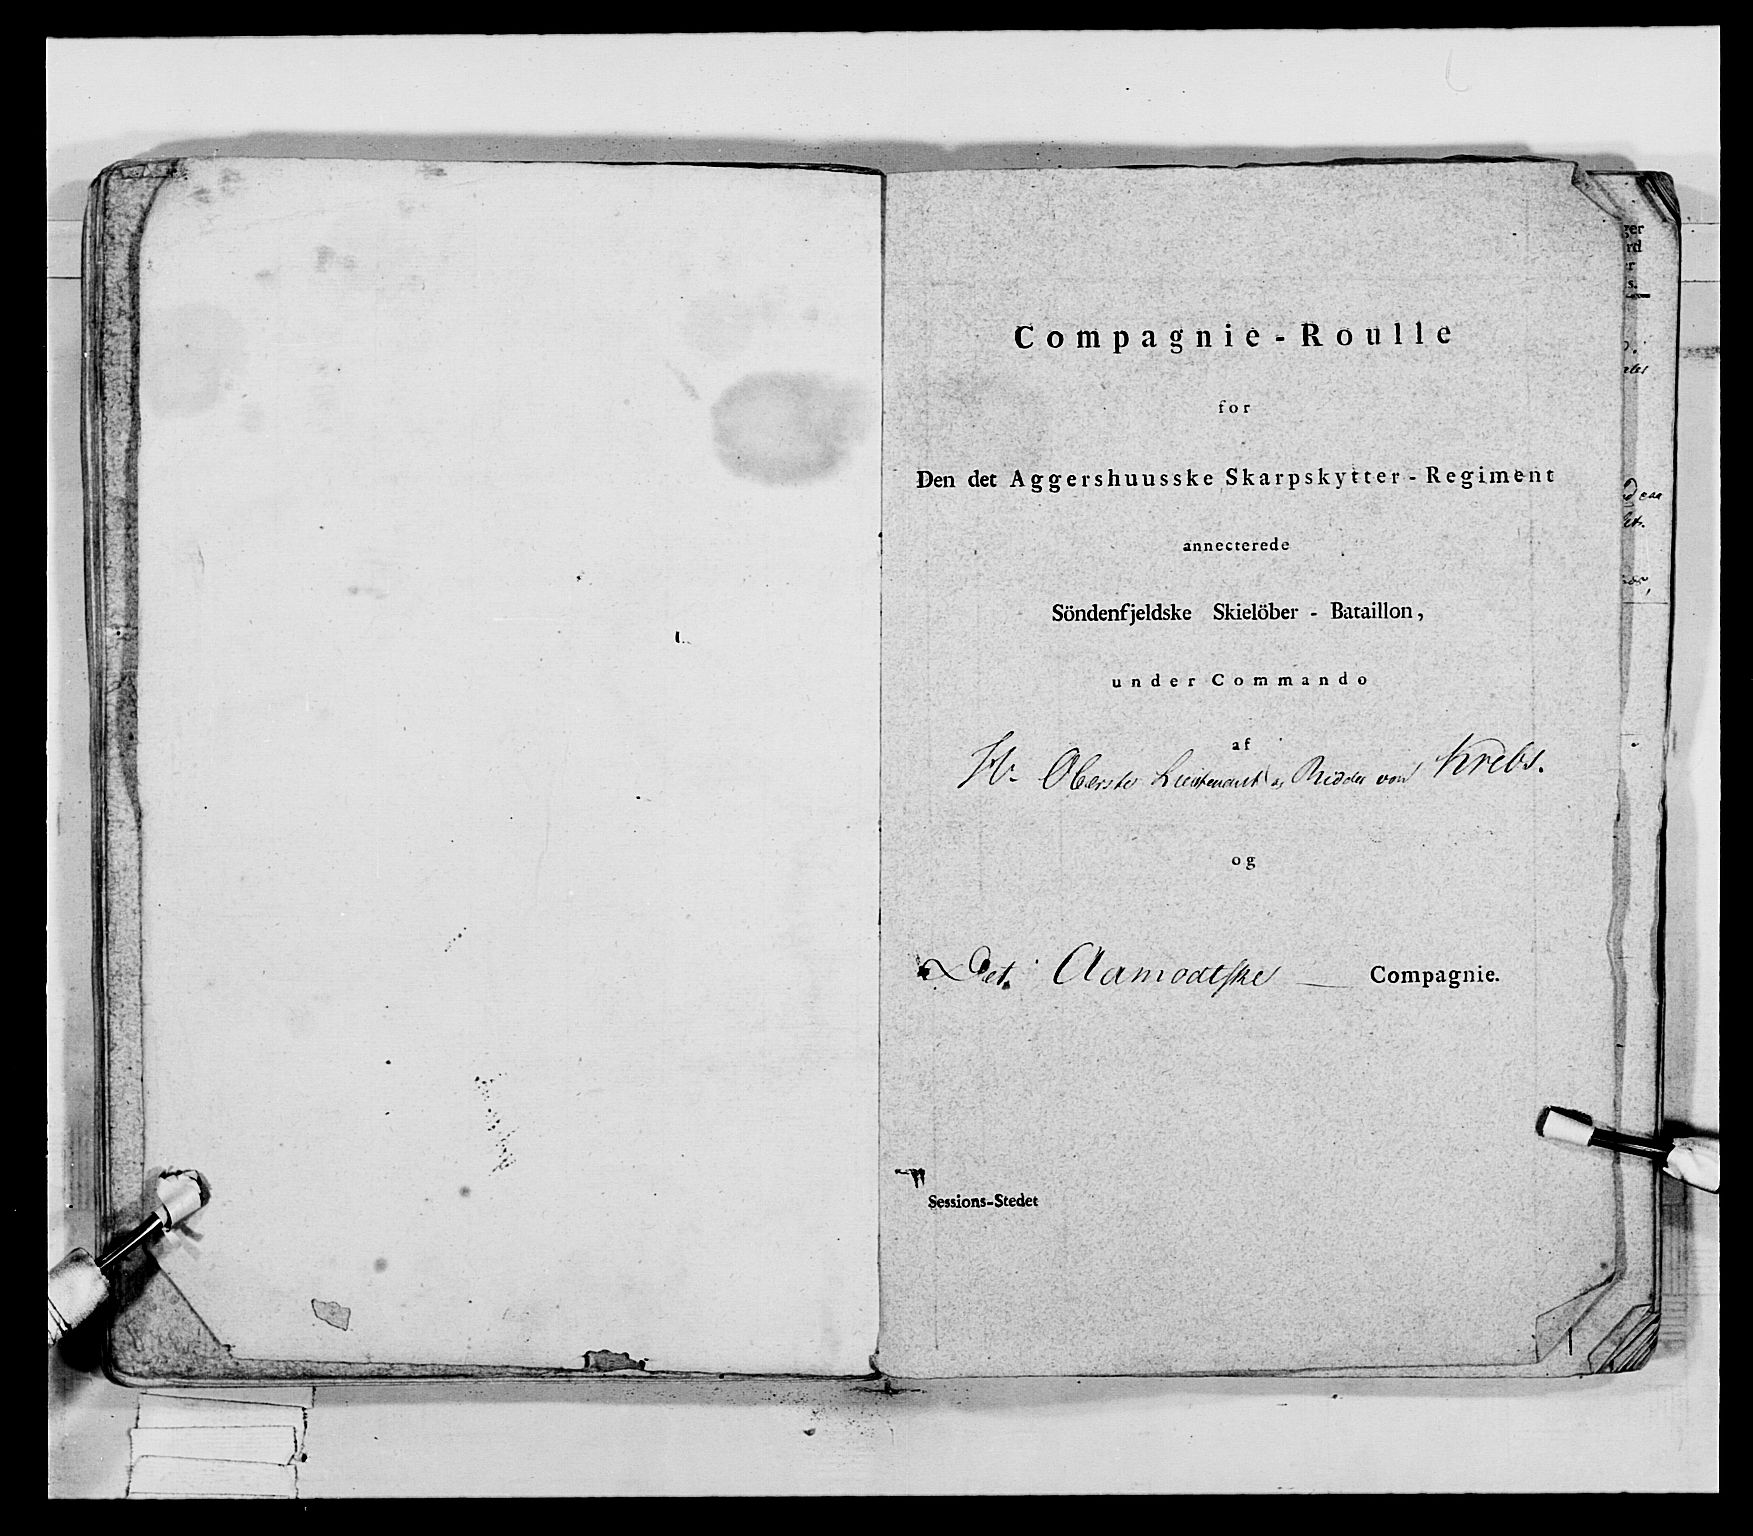 Compagnie-Roulle
for
Den det Aggershuusske Skarpskytter-Regiment
annecterede
Söndenfjeldske Skielöber - Bataillon,
under Commando
af
Hr. Oberste Lieutenant og Ridder von Krebs.
og
Det Aamodtske Compagnie.
Sessions-Stedet
ger
rd
s.